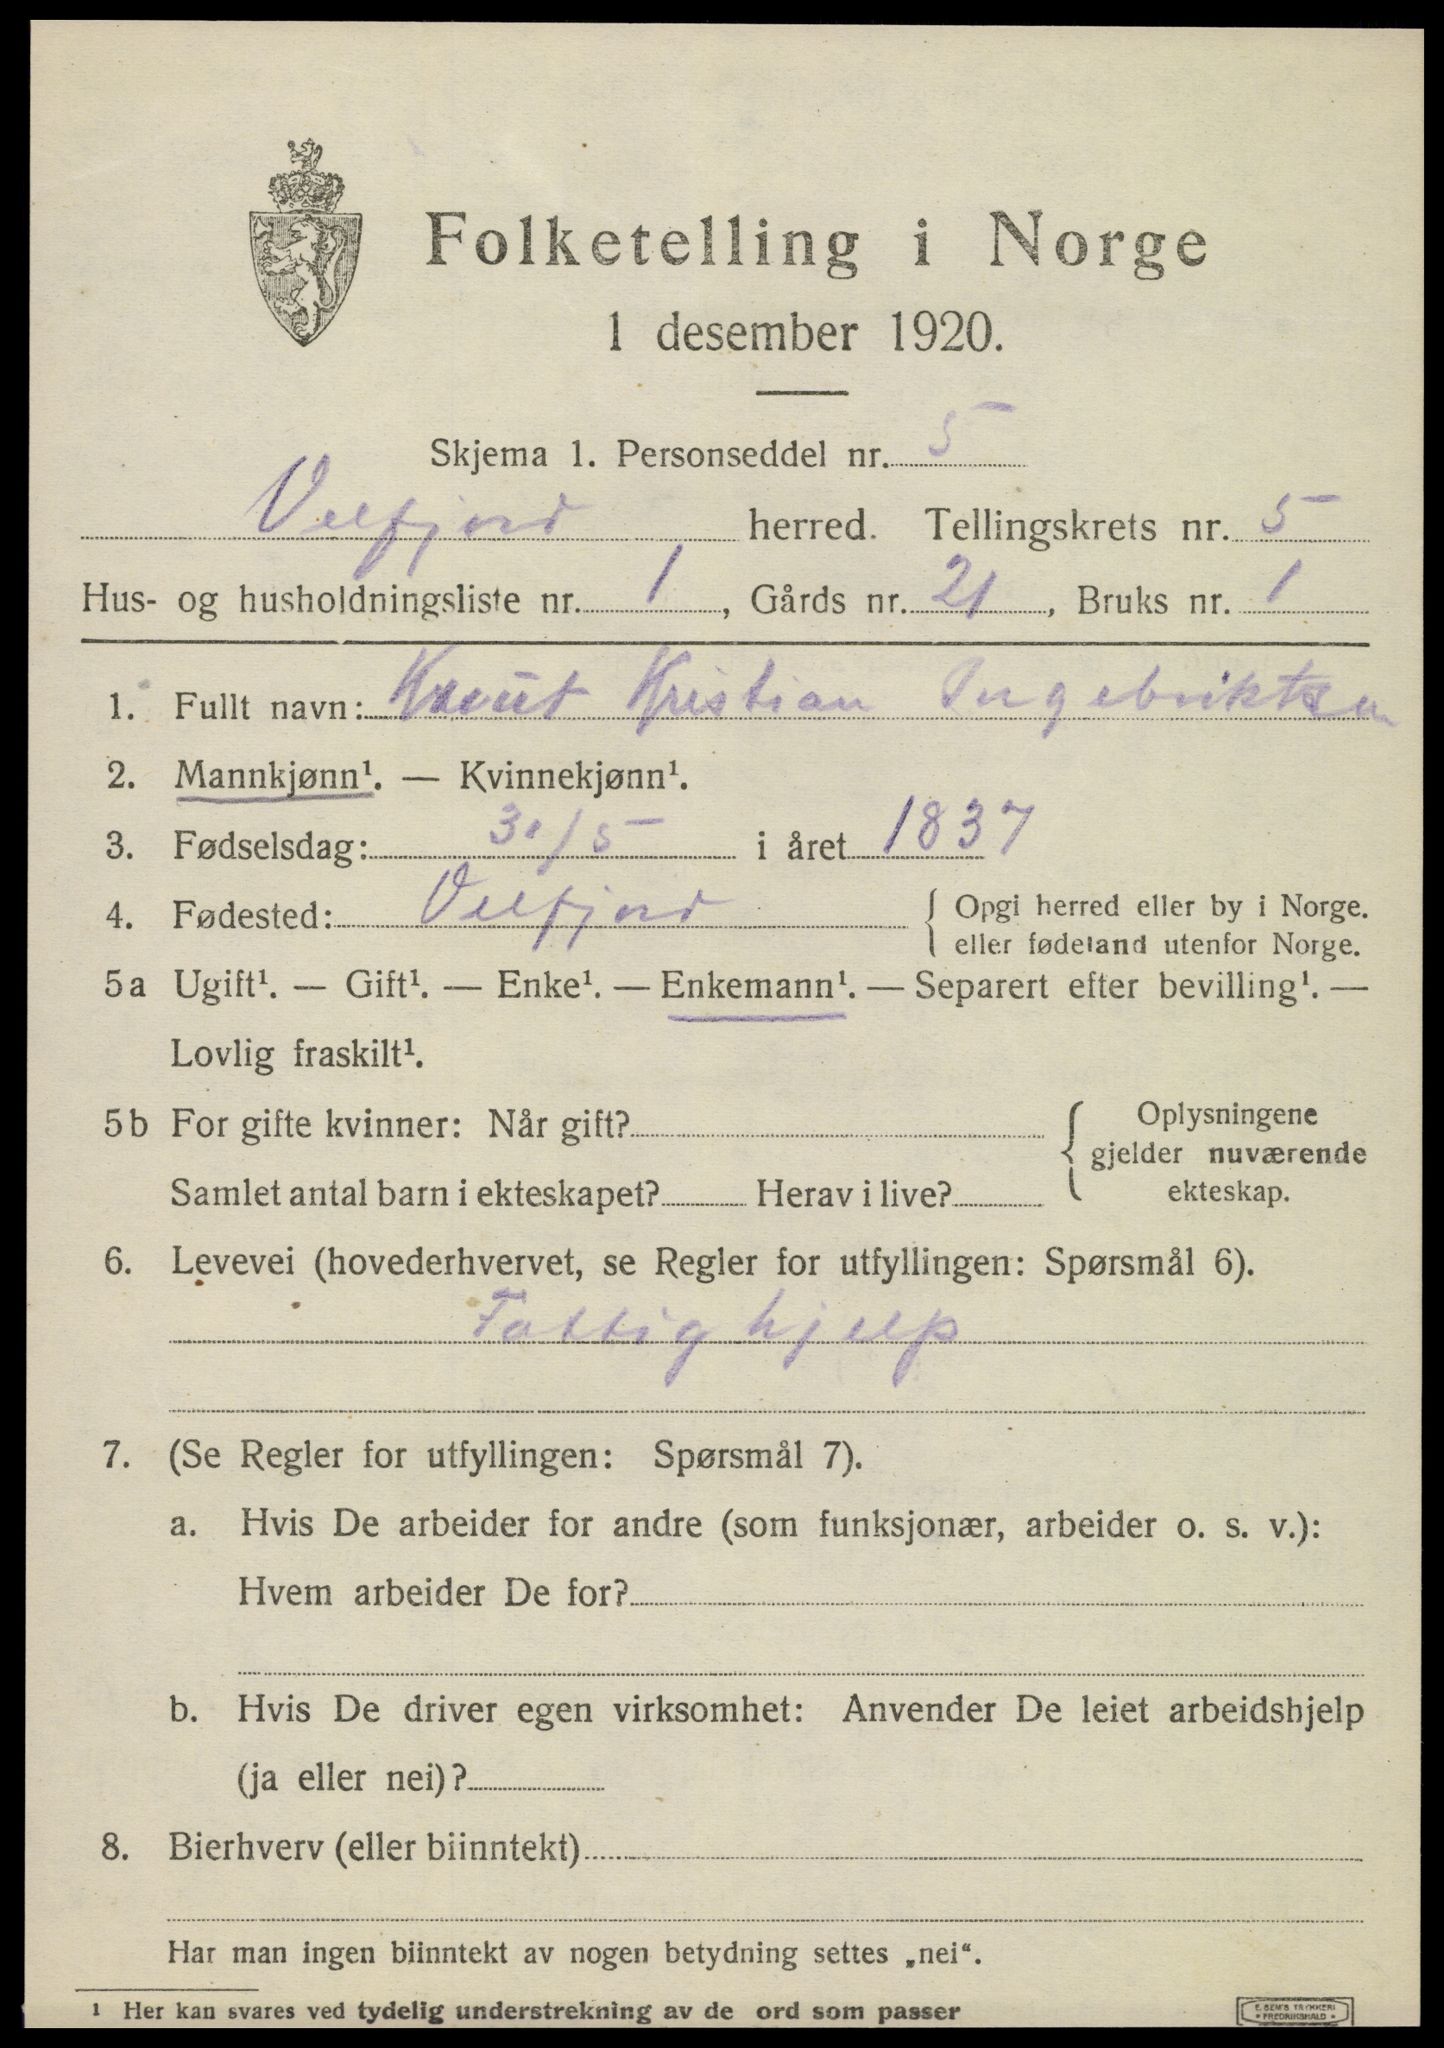 Folketelling i Norge
1 desember 1920.
Skjema 1. Personseddel nr. 5
Velfjord herred. Tellingskrets nr. 5
Hus- og husholdningsliste nr. 1, Gårds nr. 21, Bruks nr. 1
1. Fullt navn: Knut Kristian Ingebriktsen
2. Mannkjønn¹. — Kvinnekjønn¹.
3. Fødselsdag: 30/5 i året 1837
4. Fødested: Velfjord { Opgi herred eller by i Norge.
eller fødeland utenfor Norge.
5 a Ugift¹. — Gift¹. — Enke¹. — Enkemann¹. — Separert efter bevilling¹. —
Lovlig fraskilt¹.
5 b For gifte kvinner: Når gift? { Oplysningene
gjelder nuværende
Samlet antal barn i ekteskapet? Herav i live? ekteskap.
6. Levevei (hovederhvervet, se Regler for utfyllingen: Spørsmål 6).
Fattighjelp
7. (Se Regler for utfyllingen: Spørsmål 7).
a. Hvis De arbeider for andre (som funksjonær, arbeider o. s. v.):
Hvem arbeider De for?
b. Hvis De driver egen virksomhet: Anvender De leiet arbeidshjelp
(ja eller nei)?
8. Bierhverv (eller biinntekt)
Har man ingen biinntekt av nogen betydning settes „nei“.
¹ Her kan svares ved tydelig understrekning av de ord som passer
E. SEM'S TRYKKERI
FREDRIKSHALD